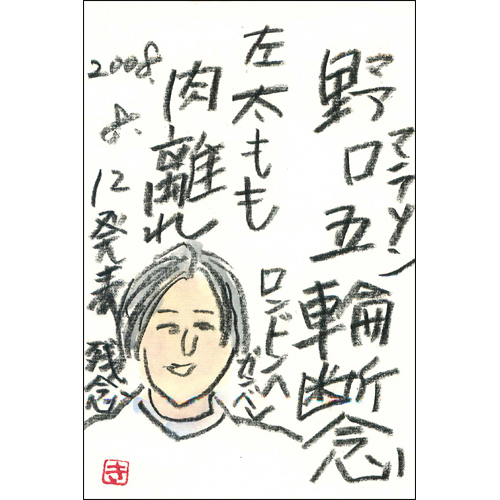 マラソン
野口五輪断念
左太もも
肉離れ
ロンドンへ
ガンバレ
2008.
8.12発表 残念
寺